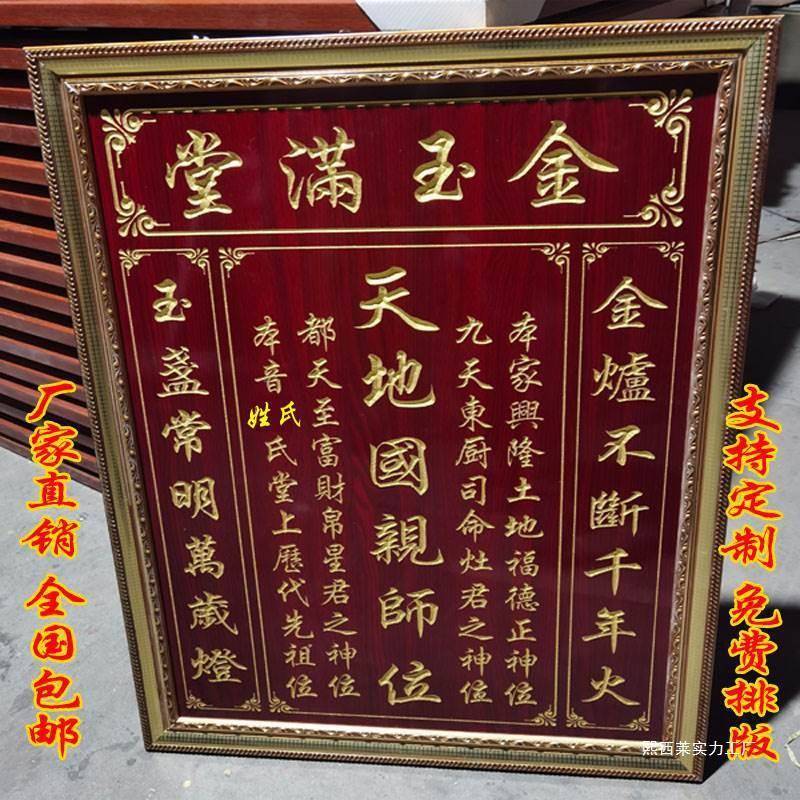 金玉滿堂
金爐不斷千年火
本家興隆土地福德正神位
九天東厨司命灶君之神位
天地國親師位
都天至富財帛星君之神位
本音姓氏氏堂上歷代先祖位
玉盞常明萬歲燈
厂家直销 全国包邮
支持定制 免费排版
熙西莱实力工厂